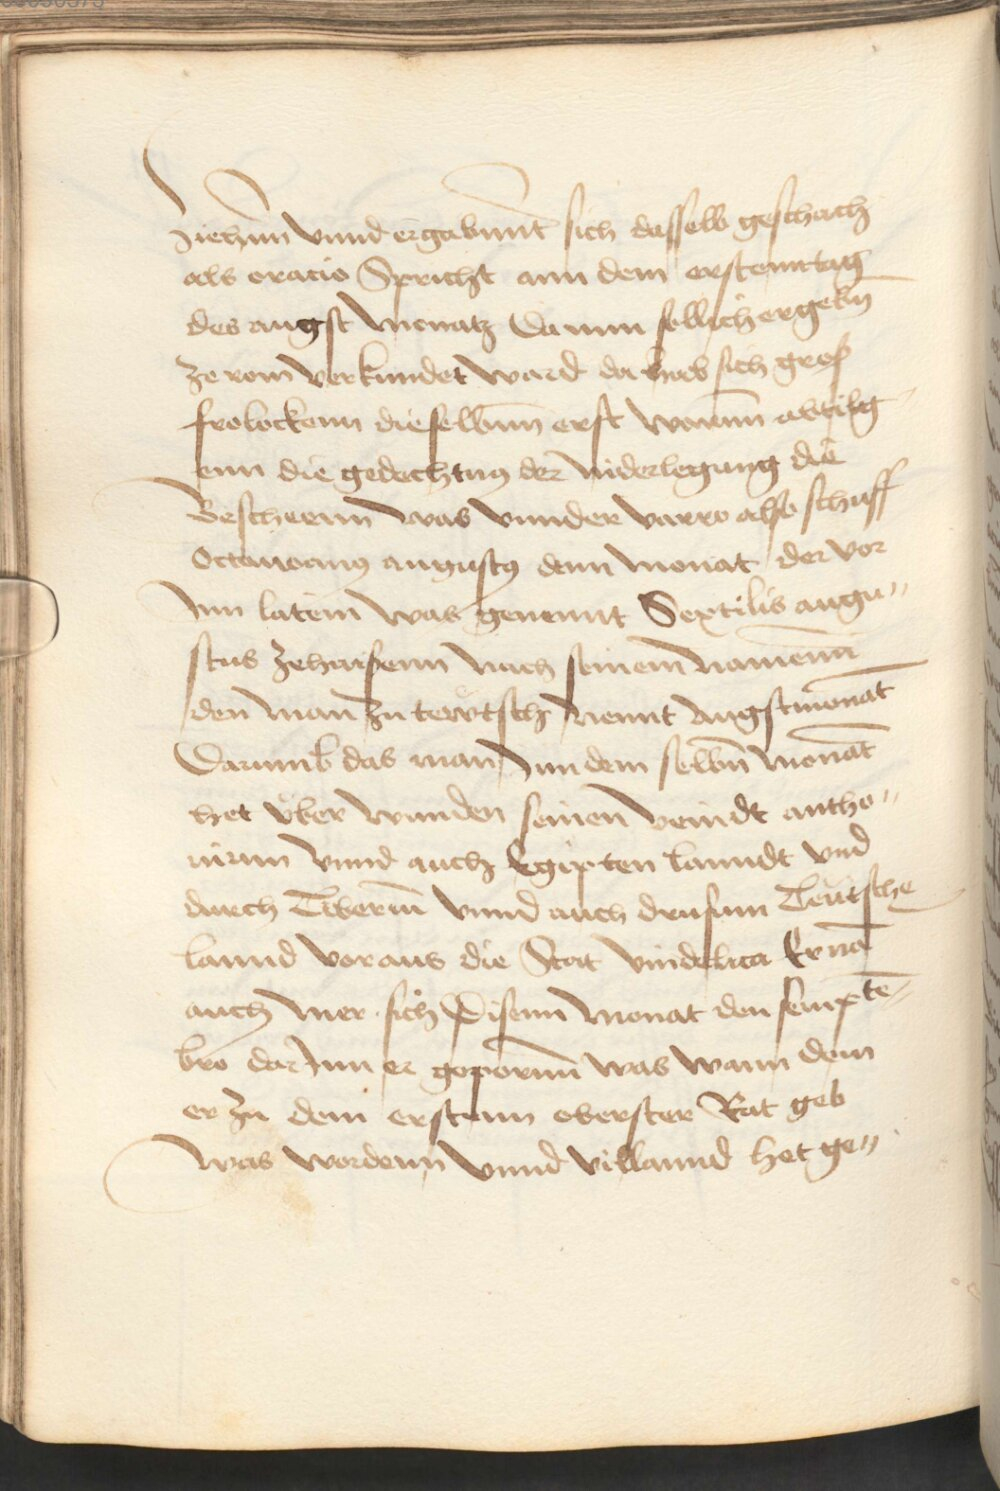 Ziehenn vnnd ergabennt sich dasselb geschach
als oracio Spricht ann dem erstenn tag
des augst monatz Da nun sollich ergebn
ze rom verkundet ward da hub sich groß
frolockenn dieselbenn erst warenn abtilg
enn die gedechtnus der niderlegung die
Bescheenn was vnnder varro also schuff
Octavianus augustus denn monat der vor
Inn latein was genennt Sextilis augu"
stus zehaissenn nach seinem namenn
den man zu tewtsch Nennt Augstmonat
Darumb das man Inn dem selbn monat
het vber wunden seinen veindt antho"
nium vnnd auch Egipten lanndt vnd
durch Tiberiu vnnd auch drusum Teutsche
lannd voraus die Stat vindelica
auch mer sich disenn monat den septe"
bro dar Inn er geporenn was wann dem
er zu dem erstenn oberster Rat geb
Was wordenn vnnd villannd het ge"